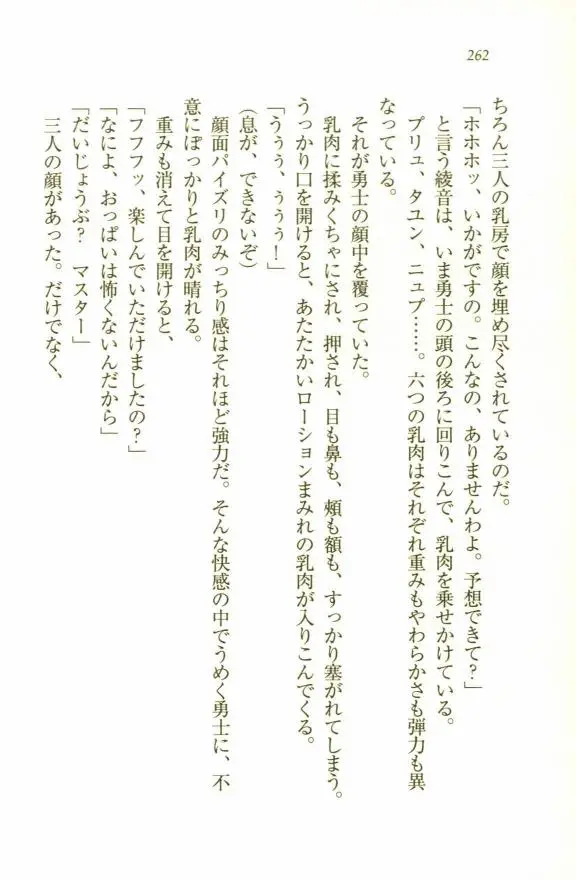 262
ちろん三人の乳房で顔を埋め尽くされているのだ。
「ホホホッ、いかがですの。こんなの、ありませんわよ。予想できて?」
と言う綾音は、いま勇士の頭の後ろに回りこんで、乳肉を乗せかけている。
プリュ、タユン、ニュプ……。六つの乳肉はそれぞれ重みもやわらかさも弾力も異
なっている。
それが勇士の顔中を覆っていた。
乳肉に揉みくちゃにされ、押され、目も鼻も、頬も額も、すっかり塞がれてしまう。
うっかり口を開けると、あたたかいローションまみれの乳肉が入りこんでくる。
「ううぅ、うぅう!」
(息が、できないぞ)
顔面パイズリのみっちり感はそれほど強力だ。そんな快感の中でうめく勇士に、不
意にぽっかりと乳肉が晴れる。
重みも消えて目を開けると、
「フフフッ、楽しんでいただけましたの?」
「なによ、おっぱいは怖くないんだから」
「だいじょうぶ? マスター」
三人の顔があった。だけでなく、